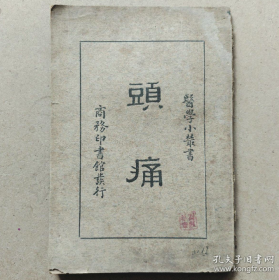 醫學小叢書
頭痛
商務印書館發行
孔夫子旧书网